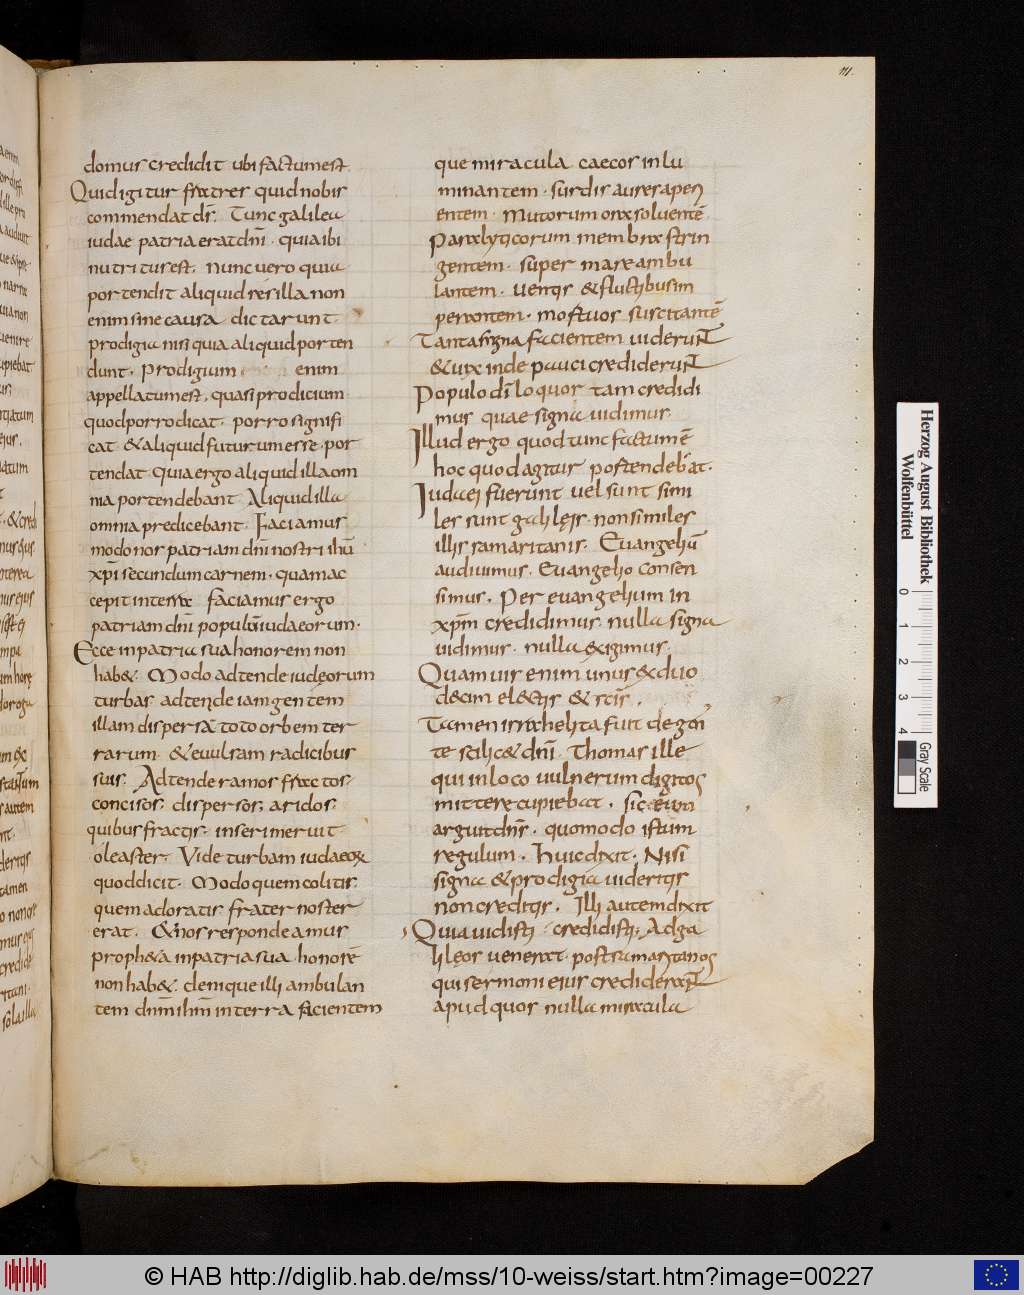 111.
domus credidit ubi factum est
Quid igitur fratres quid nobis
commendat dns. Tunc galilea
iudae patria erat dni. quia ibi
nutritus est. nunc vero quia
portendit aliquid res illa non
enim sine causa dictarunt
prodigia nisi quia aliquid porten
dunt. Prodigium enim
appellatum est, quasi prodicium
quod porro dicat. porro signifi
cat & aliquid futurum esse por
tendat Quia ergo aliquid illa om
nia portendebant Aliquid illa
omnia predicebant. Faciamus
modo nos patriam dni nostri ihu
xpi secundum carnem. quam ac
cepit in terra faciamus ergo
patriam dni populum iudaeorum.
Ecce in patria sua honorem non
hab&. Modo adtende iudęorum
turbas. adtende iam gentem
illam dispersā toto orbem ter
rarum. & evulsam radicibus
suis. Adtende ramos fractos
concisos. dispersos, aridos.
quibus fractis. inseri meruit
oleaster. Vide turbam iudaeorum
quod dicit. Modo quem colitis.
quem adoratis frater noster
erat. & nos respondeamus
proph&a in patria sua honorē
non hab&. denique illi ambulan
tem dnm ihm in terra facientem
que miracula caecos inlu
minantem. surdis aures aperi
entem. Mutorum ora solventē
Paralyticorum membra strin
gentem. super mare ambu
lantem. ventis & fluctibus im
perantem. mortuos suscitantē
Tanta signa facientem viderunt
& vix inde pauci crediderunt
Populo di loquor tam credidi
mus quae signa vidimus.
Illud ergo quod tunc factum ē
hoc quod agitur portendebat.
Iudaei fuerunt vel sunt simi
les sunt galilęis. non similes
illis samaritanis. Evangeliū
audivimus. Evangelio consen
simus. Per evangelium in
xpm credidimus. nulla signa
vidimus. nulla exigimus.
Quamvis enim unus ex duo
d&im electis & scis.
Tamen israhelita fuit de gen
te scilic& dni. Thomas ille
qui in loco vulnerum digitos
mittere cupiebat. sic eum
arguit dns. quomodo istum
regulum. Huic dixit. Nisi
signa & prodigia videritis
non creditis. Illi autem dixit
Quia vidisti credidisti. Ad ga
lilęos venerat. post samaritanos
qui sermoni eius crediderunt
apud quos nulla miracula
Herzog August Bibliothek
Wolfenbüttel
0 1 2 3 4
Gray Scale
© HAB http://diglib.hab.de/mss/10-weiss/start.htm?image=00227